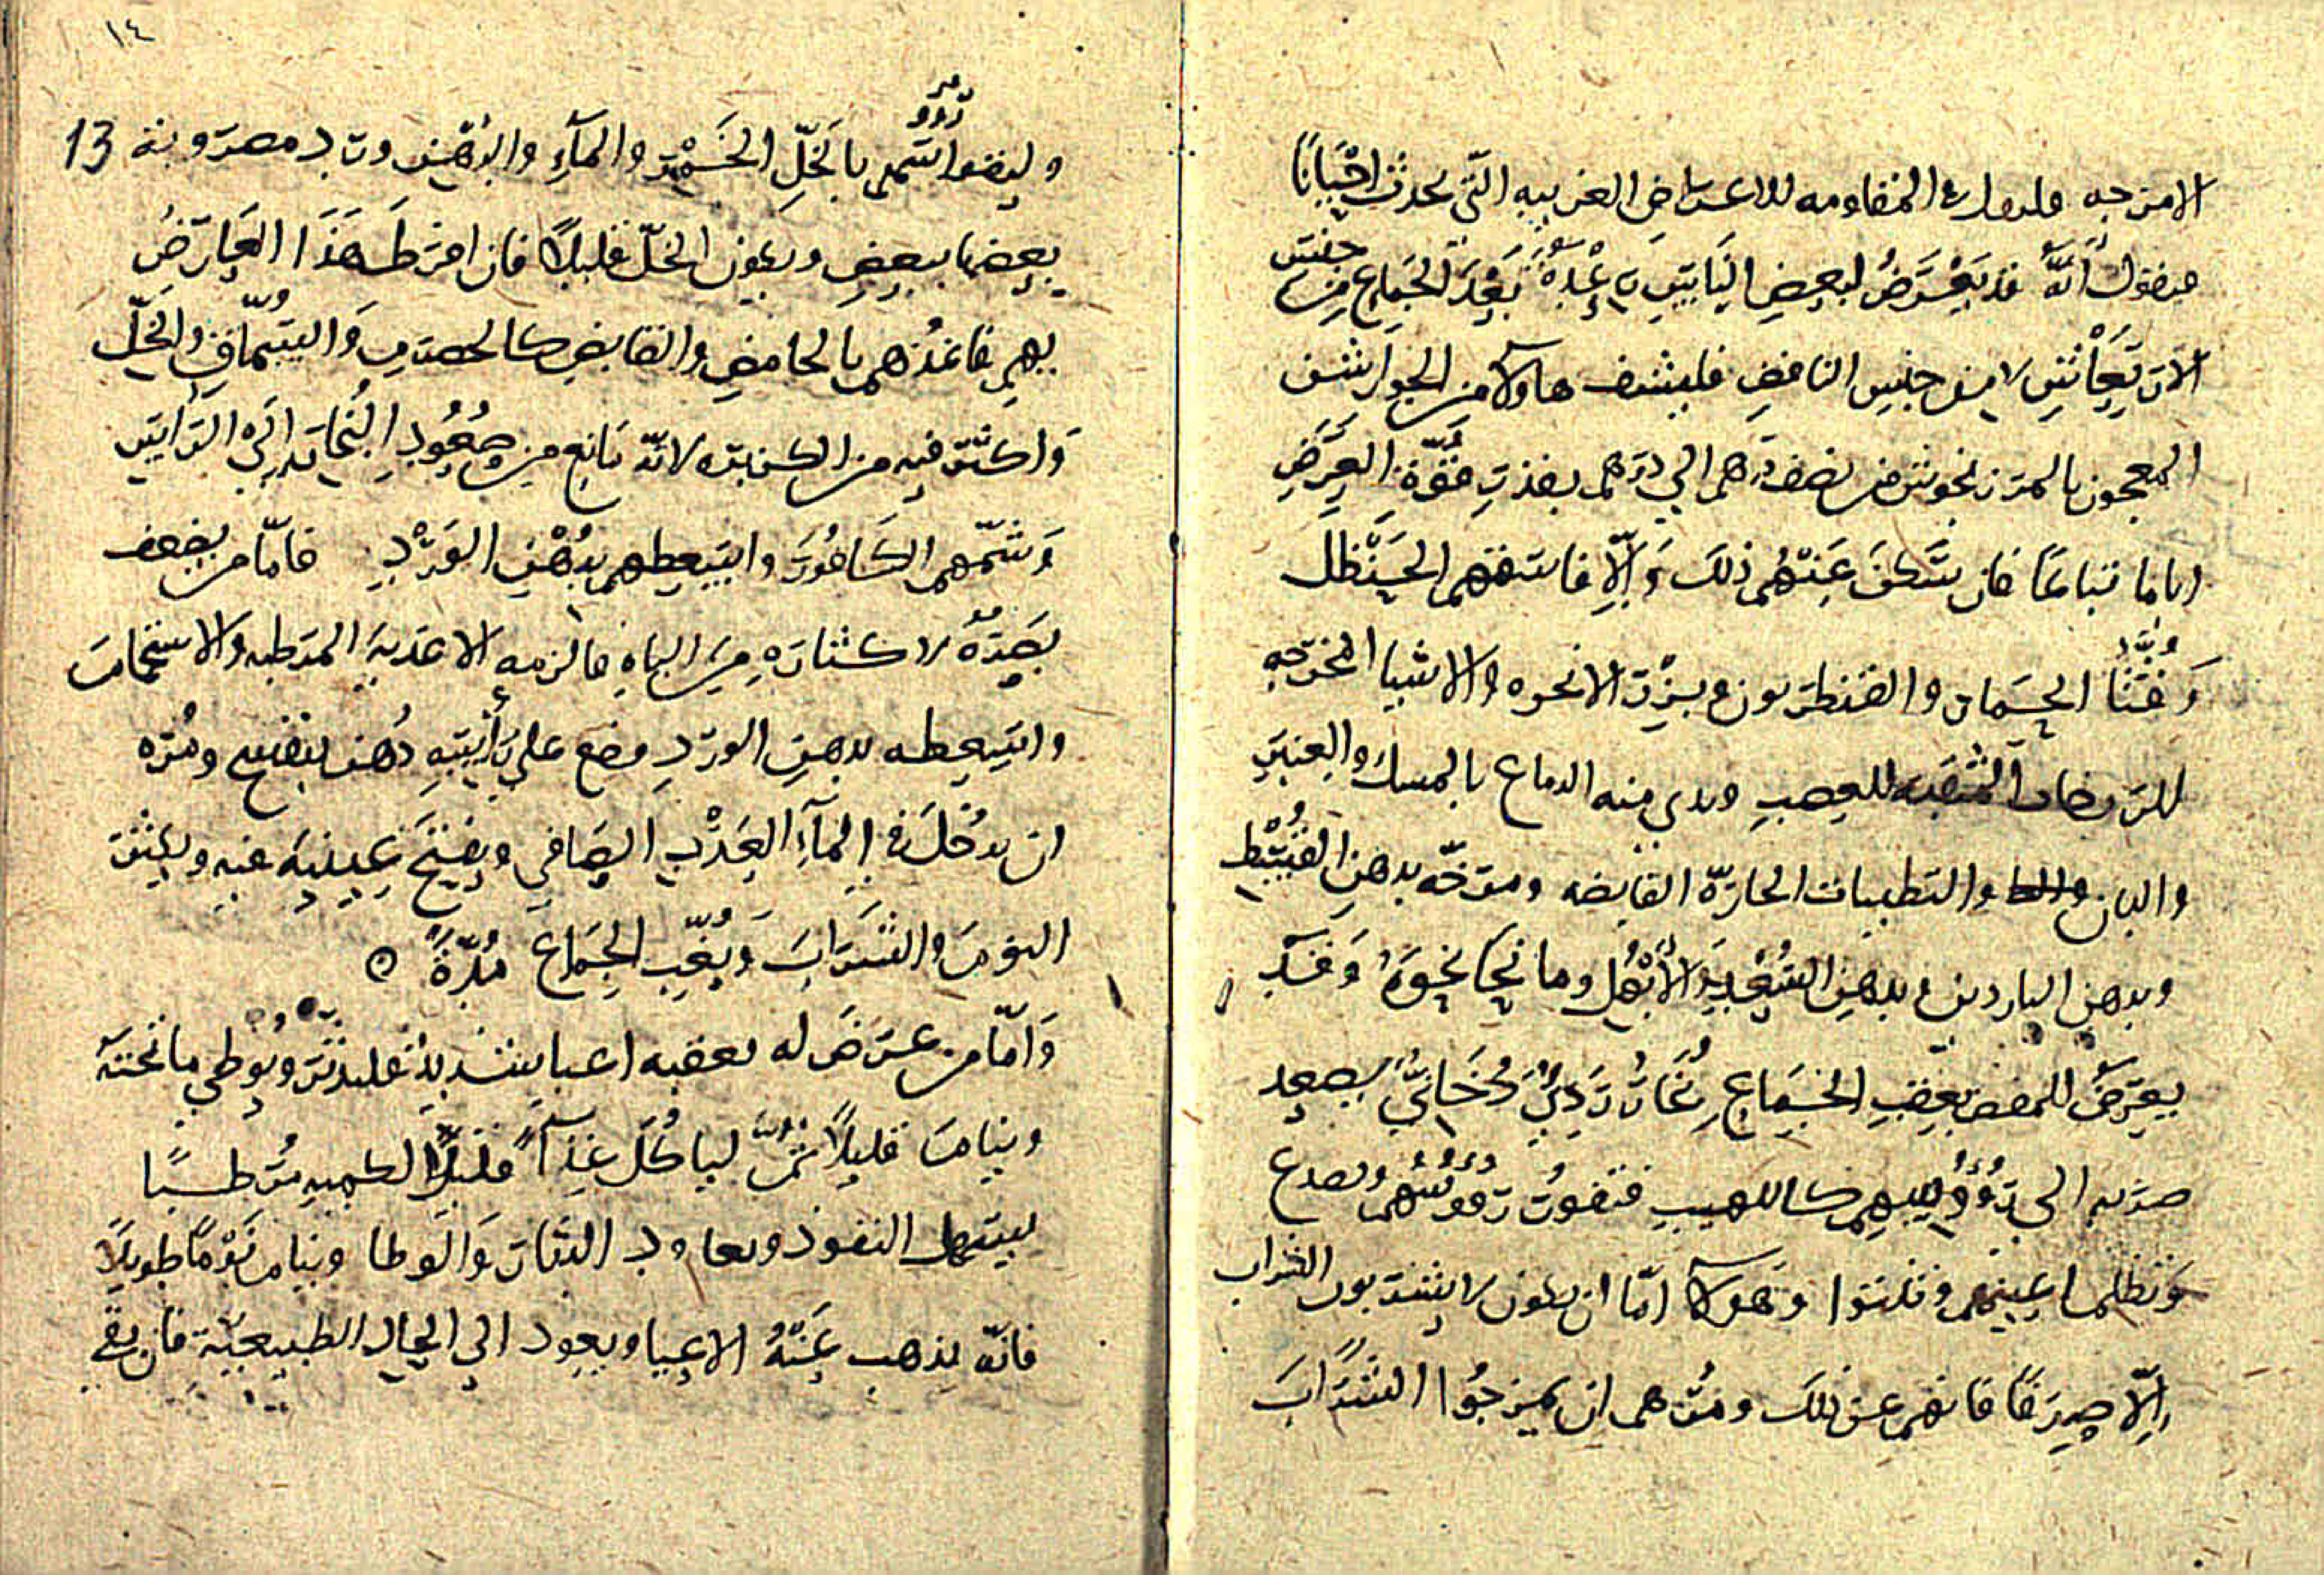 الامزجه فلنقول في المقاومه للاعراض الغريبه التي تحدث احيانًا
فنقول انّه قد يَعْرَضُ لبعضِ النَاسِ رِعْدَةٌ بَعْدَ الجِمَاعِ مِن جنس
الارتِعَاشِ لا من جنسِ النافضِ فليسف هاولآ من الجوارشن
المعجون بالمرزنجوش من نصف درهم الي درهم بقدرِ قُوّةِ العَرَضِ
اياما تباعًا فان سَكَنَ عَنْهُم ذلك وَإلّا فاسقهم الحَنْظل
وَقثّا الحمار والقنطريون وبزر الانجره والاشيا المخرجه
للرطوبات المنقيه للعصب وقوي منه الدماغ بالمسك والعنبرِ
والبان والتطييبات الحارّة القابضه ومرّخه بدهنِ القُسْط
وبدهن الناردين وبدهن السُعْدِ والأبْهُل وما نحا نحوَهُ وَقَد
يعرَضُ لبعض بعقبِ الجِمَاعِ بُخَارٌ رَدِيٌ دُخَانِيٌ يصعد
ضربه الي رُؤُوسِهم كاللهيبِ فتفور رووسُهم وتصدع
وَتظلم اعينهم وهولآ امّا ان يكون لا يشربون الشراب
إلّا صِرفًا فانهم عن ذلك ومُرهم ان يمزجُوا الشَرَابَ
١٤
13
وليضوا رُوُوسَهم بالخَلِّ الخَمْرِ والمآءِ والدُهن ورد مضروبة
بعضها ببعضٍ ويكون الخلّ قليلًا فان افرَطَ هَذا العَارَضُ
بهم فاغذُهم بالحامضِ والقابضِ كالحصرمِ وَالسُمّاقِ والخلّ
وَاكثر فيه من الكزبره لانّه مَانِع من صُعُودِ البُخارِ إلَى الرَاسِ
وَشمّهم الكَافُورَ واسعطهم بدُهْنِ الوَرْدِ فامّا من يضعف
بَصَرُهُ لاكثارِهِ مِنَ الباهِ فالزمه الاغذيهَ المرطبه والاستحمامَ
واسعطه بدهنِ الوردِ وضع على رأسِهِ دُهنَ بنفسج ومُره
ان يدخُلَ في المآءِ العَذْبِ الصَافي ويفتحَ عينيهَ فيه ويكثر
النومَ والشَرَابَ وَيُغِبّ الجِمَاعَ مُدّةً ٥
وَامّا من عرَضَ له بعقبه اعيا شديدٌ فليدثر ويُوطي ما تحته
وينامَ قليلًا ثمّ لياكُلَ غِذآءً قليلًا لكميه مُرطبًا
ليسهل النفوذ ويعاود الدثارَ وَالوطا وينام نَوْمًا طويلًا
فانّه يذهب عَنهُ الاعيا ويعود الي الحال الطبيعيّة فان بقي